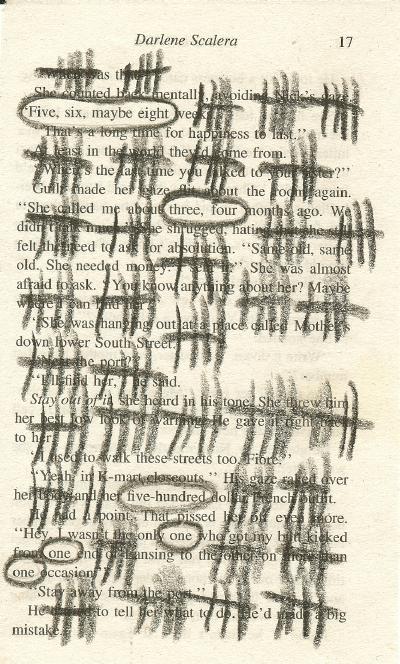 Darlene Scalera 17
"When was that?"
She counted back mentally, avoiding Nick's
"Five, six, maybe eight weeks."
"That's a long time for happiness to last."
At least in the world they'd come from.
"When's the last time you talked to your sister?"
Guilt made her gaze flit about the room again.
"She called me about three, four months ago. We
didn't talk much." She shrugged, hating that she still
felt the need to ask for absolution. "Same old, same
old. She needed money. I sent it." She was almost
afraid to ask. "You know anything about her? Maybe
where I can find her?"
"She was hanging out at a place called Mother's
down lower South Street."
"Near the port?"
"I'll find her," he said.
Stay out of it, she heard in his tone. She threw him
her best low look of warning. He gave it right back
to her.
"I used to walk these streets too, Fiore."
"Yeah, in K-mart closeouts." His gaze raked over
her body and her five-hundred dollar French outfit.
He had a point. That pissed her off even more.
"Hey, I wasn't the only one who got my butt kicked
from one end of Lansing to the other on more than
one occasion."
"Stay away from the port."
He dared to tell her what to do. He'd made a big
mistake.